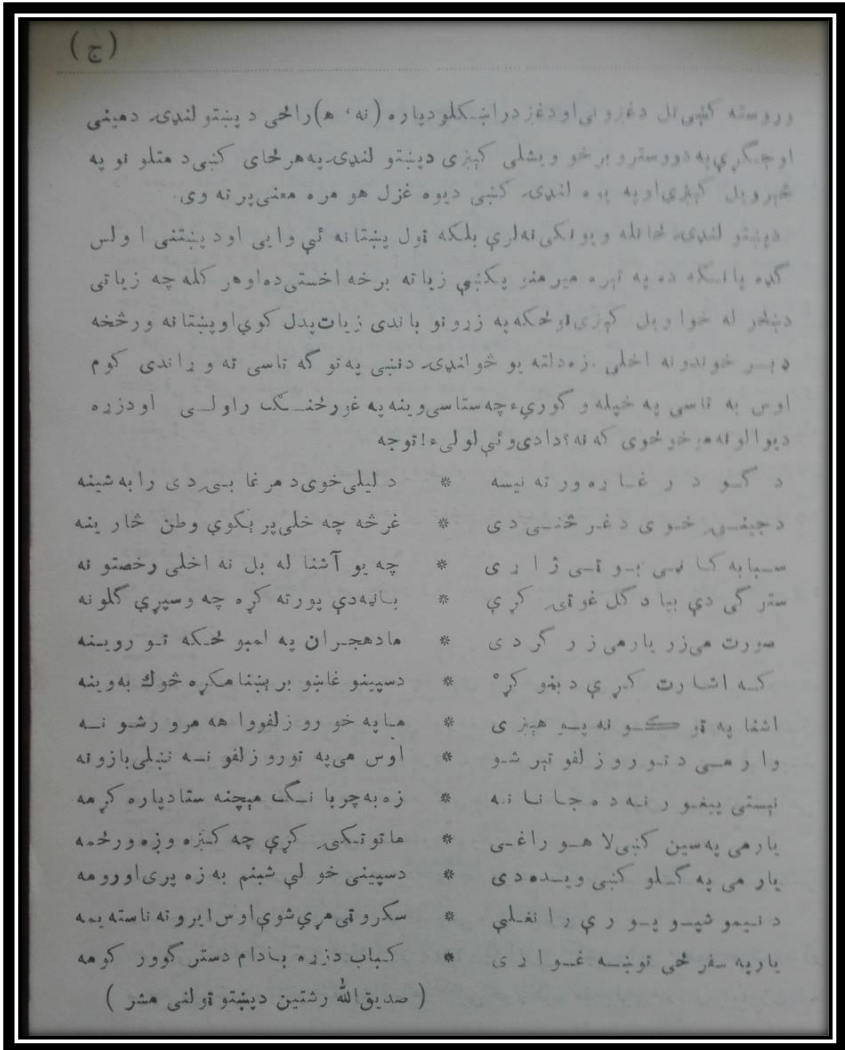 (ج)
وروسته کښې تل دغزونی اودغز دراښکلو دپاره (نه، ه) راځی د پښتو لنډۍ دمینی
او جنگړې په دووسترو برخو ویشلی کېږی دپښتو لنډۍ په هر ځای کښې د متلو تو په
څېر ویل کېږی او په یوه لنډۍ کښې دیوه غزل هو مره معنی پر ته وی.
دپښتو لنډۍ ځانله ویونکی نه لری بلکه ټول پښتانه ئې وایی اود پښتنی ا ولس
گډه پانگه ده په تېره میرمنو پکښې زیا ته برخه اخستی ده اوهر کله چه زیاتی
دښځو له خوا ویل کېږی نو ځکه په زړونو باندی زیات پدل کوي اوپښتانه ورڅخه
ډېر خوندونه اخلی. زه دلته یو څو لنډۍ دنښې په توگه تاسی ته و ړاندی کوم
اوس به تاسی په خپله و گورئ چه ستاسی وینه په غورځنگ راولی اودزړه
دیوالونه مو خوځوی که نه؟ دادی وئې لولئ! توجه
د گودر غاړه ورته نیسه * د لیلی خوی د مرغا بۍ دی رابه شینه
دجینۍ خوی دغرڅنی دی * غرڅه چه خلی پر ېکوي وطن ځار ینه
سبا به کا ڼی بوټی ژاړی * چه یو آشنا له بل نه اخلی رخصتو نه
سترگی دې بیا دگل غوټۍ کړې * باڼه دې پورته کړه چه وسپړي گلونه
صورت می زړ یار می زرگر دی * مادهجران په لمبو ځکه تو روینه
که اشارت کړې دبڼو کړه * دسپینو غاښو بر ېښنا مکړه څوك به وینه
اشنا په ټوکونه پوهېږی * ما په خو رو زلفو وا هه مرو رشو نه
وار می د تورو زلفو تېر شو * اوس می په تورو زلفو نه نښلی بازونه
نېستی پېغور نه ده جانا نه * زه به چر با نگ مېچنه ستا دپاره کړمه
یارمی په سین کښې لا هو راغی * ماتوتکۍ کړې چه کېږه وزه ورځمه
یار می په گلو کښې ویده دی * دسپینی خو لې شبنم به زه پرې اوروم
د نیمو شپو پورې را نغلې * سکروټې مړې شوې اوس ایرو ته ناسته یمه
یار په سفر ځی توښه غواړی * کباب دزړه بادام دستر گوور کومه
( صدیق الله رشتین دپښتو ټولنی مشر )